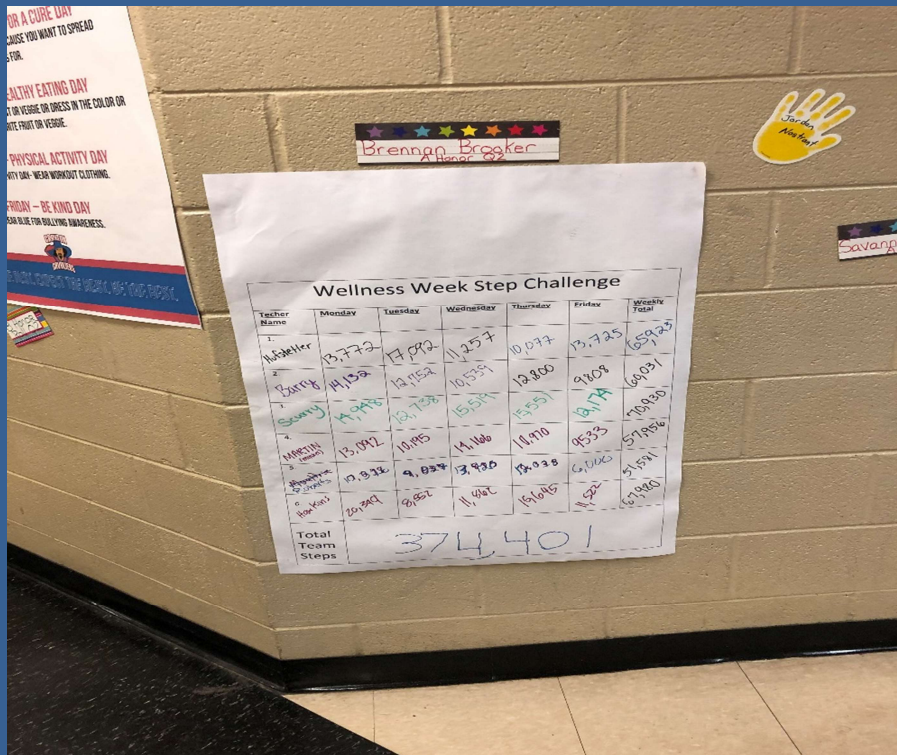 OR A CURE DAY
CAUSE YOU WANT TO SPREAD
FOR.
EALTHY EATING DAY
T OR VEGGIE OR DRESS IN THE COLOR OR
RITE FRUIT OR VEGGIE.
PHYSICAL ACTIVITY DAY
VITY DAY- WEAR WORKOUT CLOTHING.
FRIDAY – BE KIND DAY
EAR BLUE FOR BULLYING AWARENESS.
Brennan Brooker
A Honor Q2
Jordan
Savann
Wellness Week Step Challenge
Techer Name Monday Tuesday Wednesday Thursday Friday Weekly Total
1. Hofstetter 13,772 17,092 11,257 10,077 13,725 65,923
2 Barry 14,132 12,752 10,539 12,800 9808 60,031
3. Scurry 14,948 12,738 15,519 15,551 12,174 70,930
4. MARTIN 13,092 10,195 14,166 10,970 9533 57,956
5 6,000 51,581
6 Hawkins 20,349 8,852 11,462 15,645 11,522
Total Team Steps 374,401